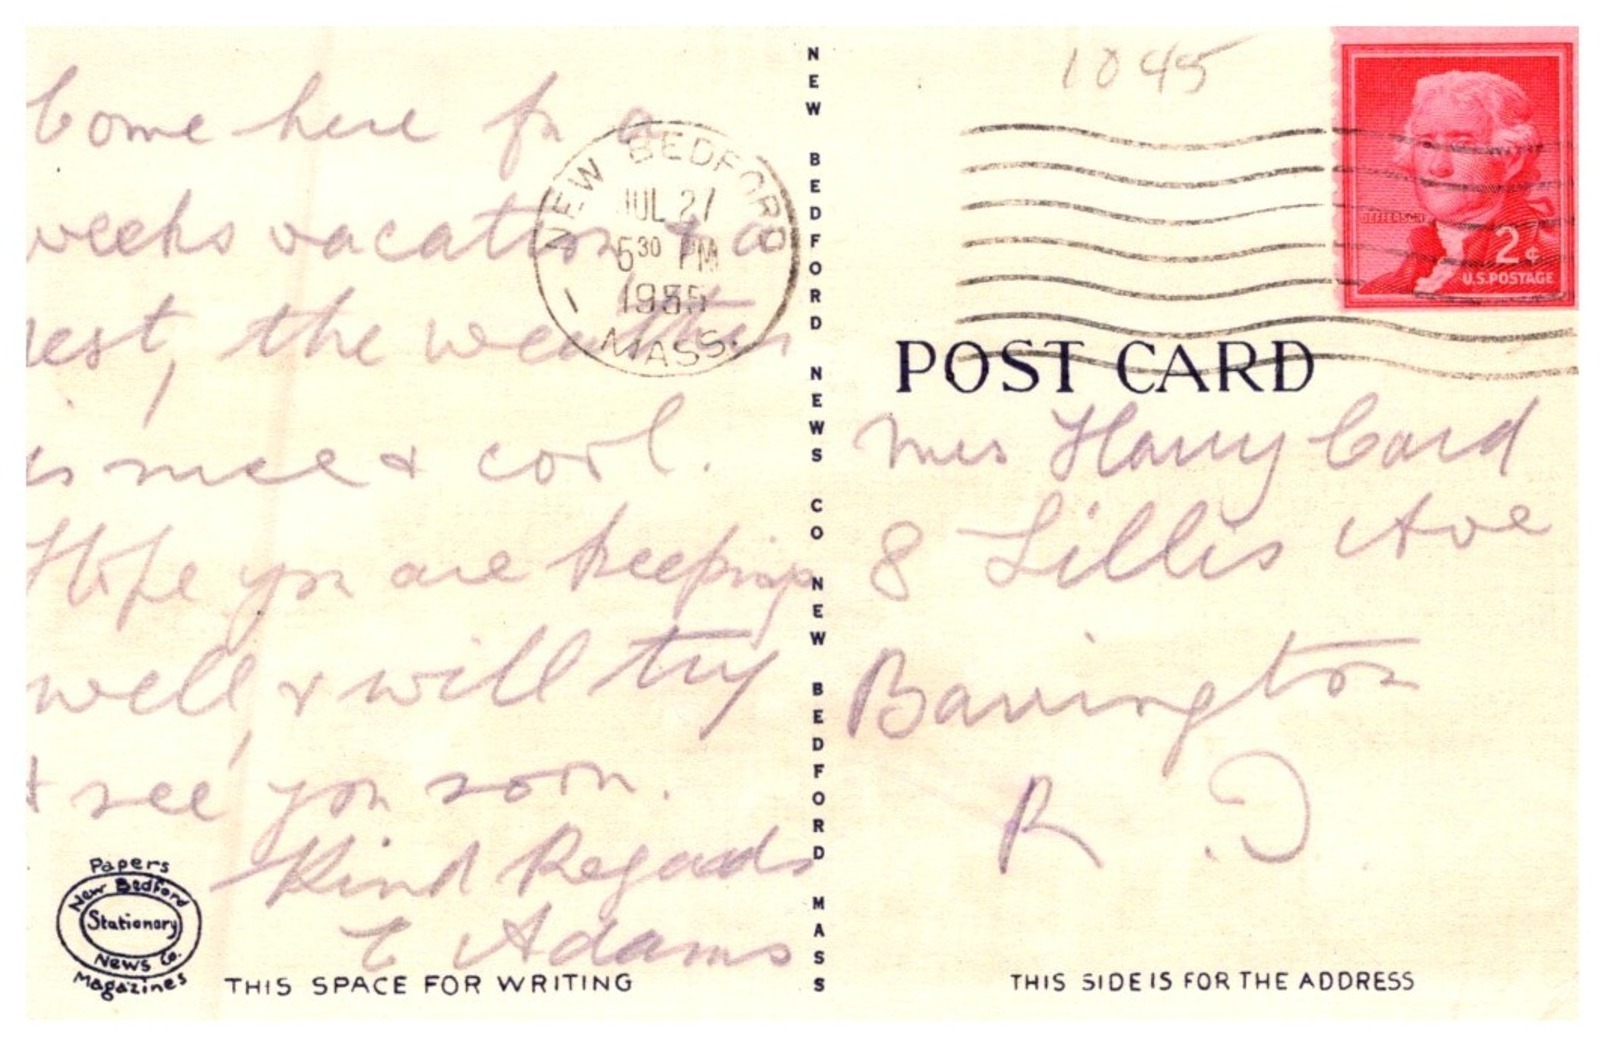 Come here for a
weeks vacation & a
rest, the weather
is nice & cool.
Hope you are keeping
well, & will try
& see you soon.
Kind Regards
C Adams
NEW BEDFORD
JUL 27
5 30 PM
1955
MASS.
1
Papers
New Bedford
Stationary
News Co.
Magazines
THIS SPACE FOR WRITING
NEW BEDFORD NEWS CO NEW BEDFORD MASS
1045
JEFFERSON
2¢
U.S. POSTAGE
POST CARD
Mrs Harry Card
8 Lillis Ave
Barrington
R. I
THIS SIDE IS FOR THE ADDRESS